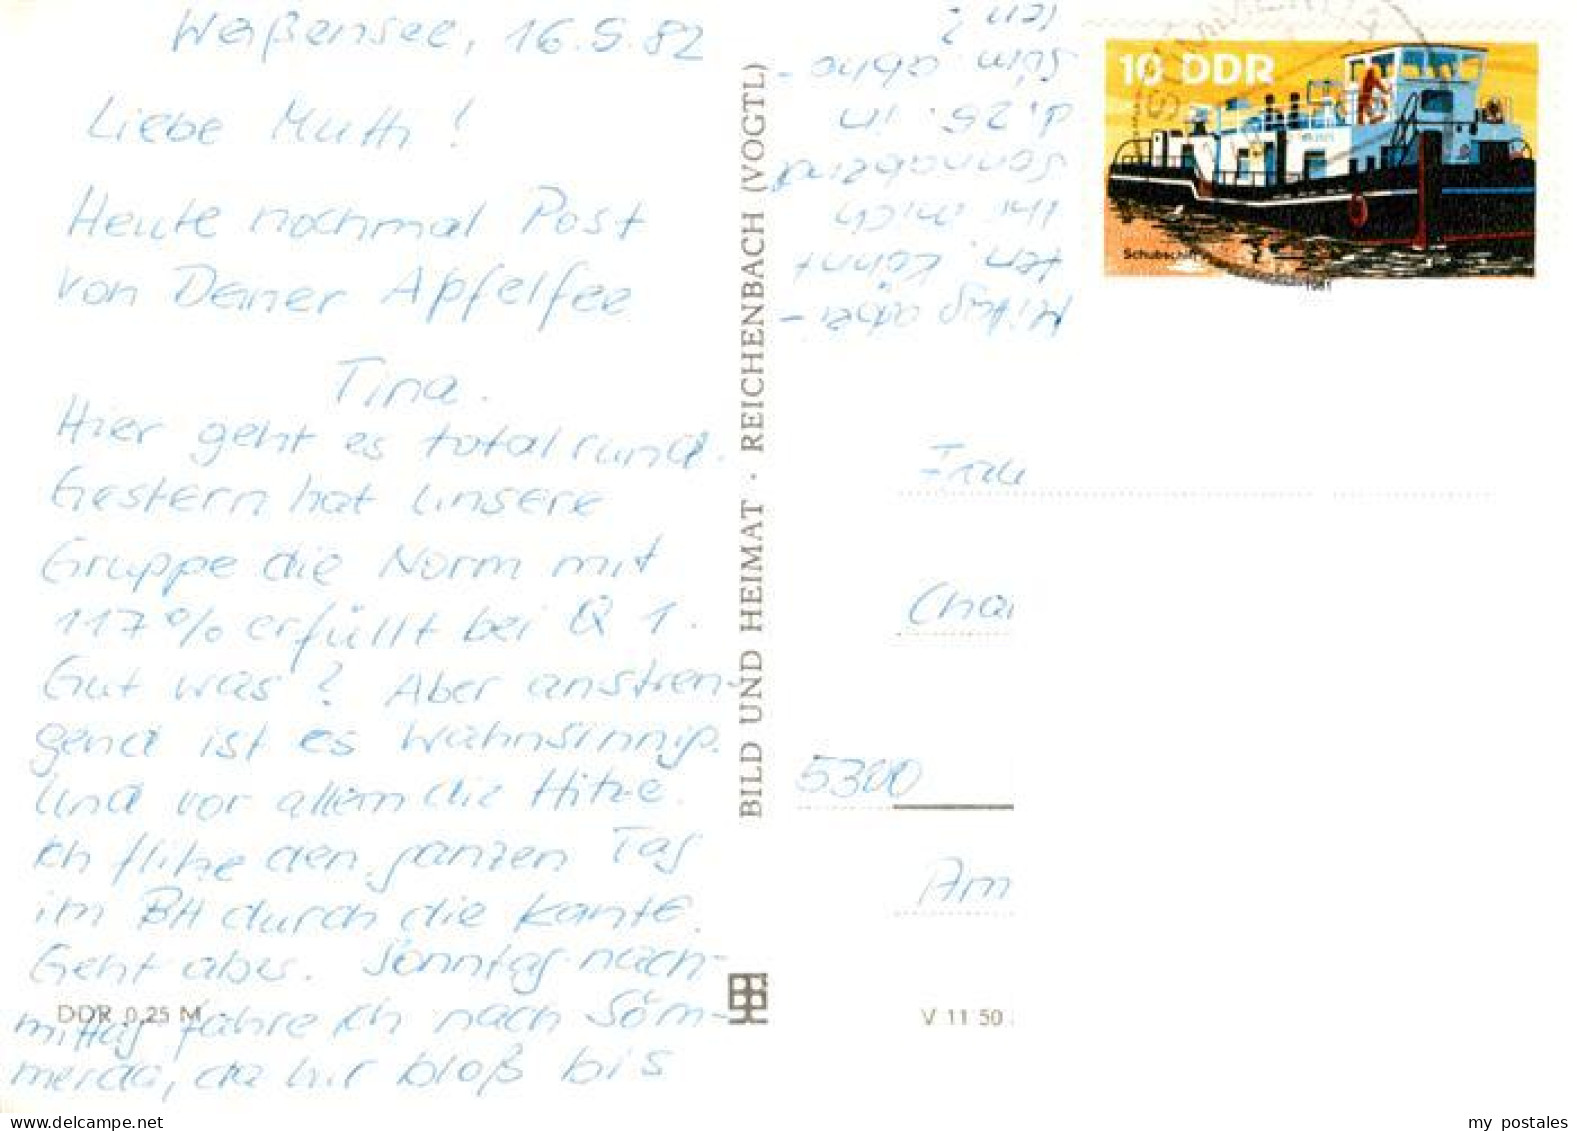 Weißensee, 16.9.82
Liebe Mutti!
Heute nochmal Post
von Deiner Apfelfee
Tina.
Hier geht es total rund.
Gestern hat unsere
Gruppe die Norm mit
117 % erfüllt bei Q 1.
Gut was? Aber anstren-
gend ist es wahnsinnig.
Und vor allem die Hitze.
Ich flitze den ganzen Tag
im BH durch die Kante.
Geht aber. Sonntag nach-
mittag fahre ich nach Söm-
merda, da wir bloß bis
Mittag arbei-
ten. Könnt
ihr mich
Sonnabend
d. 25. in
Süm abho-
len?
DDR 0,25 M
BILD UND HEIMAT · REICHENBACH (VOGTL)
10 DDR
Schubschiff
1981
Frau
Char
5300
Am
V 11 50
my postales